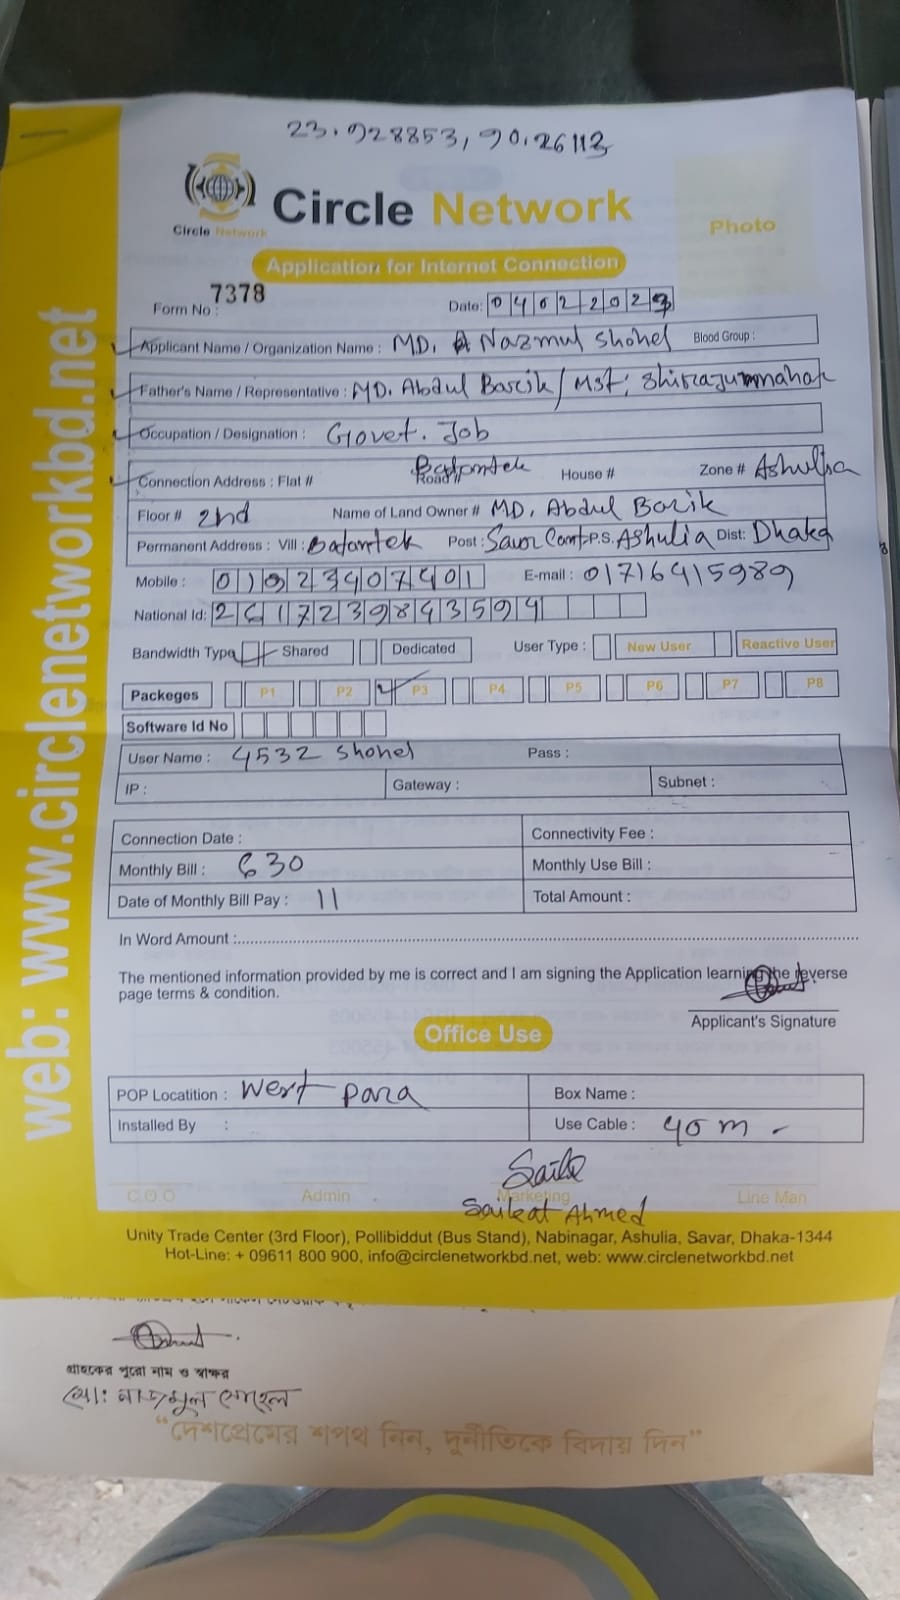 23.928853, 90.26113
Circle Network
Circle Network
Photo
Application for Internet Connection
Form No : 7378
Date: 04022023
Applicant Name / Organization Name : MD. Nazmul Shohel Blood Group :
Father's Name / Representative : MD. Abdul Barik / Mst;
Occupation / Designation : Govet. Job
Connection Address : Flat # Road # Batomtek House # Zone # Ashulia
Floor # 2nd Name of Land Owner # MD. Abdul Barik
Permanent Address : Vill : Batomtek Post : Savar Cant P.S. Ashulia Dist: Dhaka
Mobile : 01923407401 E-mail : 01716415989
National Id:
Bandwidth Type Shared Dedicated User Type : New User Reactive User
Packeges P1 P2 P3 P4 P5 P6 P7 P8
Software Id No
User Name : 4532 Shohel Pass :
IP : Gateway : Subnet :
Connection Date : Connectivity Fee :
Monthly Bill : 630 Monthly Use Bill :
Date of Monthly Bill Pay : 11 Total Amount :
In Word Amount :
The mentioned information provided by me is correct and I am signing the Application learning the reverse
page terms & condition.
Applicant's Signature
Office Use
POP Locatition : West para Box Name :
Installed By : Use Cable : 40 m -
C.O.O Admin Marketing Line Man
Saikat Ahmed
Unity Trade Center (3rd Floor), Pollibiddut (Bus Stand), Nabinagar, Ashulia, Savar, Dhaka-1344
Hot-Line: + 09611 800 900, info@circlenetworkbd.net, web: www.circlenetworkbd.net
web: www.circlenetworkbd.net
গ্রাহকের পুরো নাম ও স্বাক্ষর
মো: নাজমুল সোহেল
“দেশপ্রেমের শপথ নিন, দুর্নীতিকে বিদায় দিন”